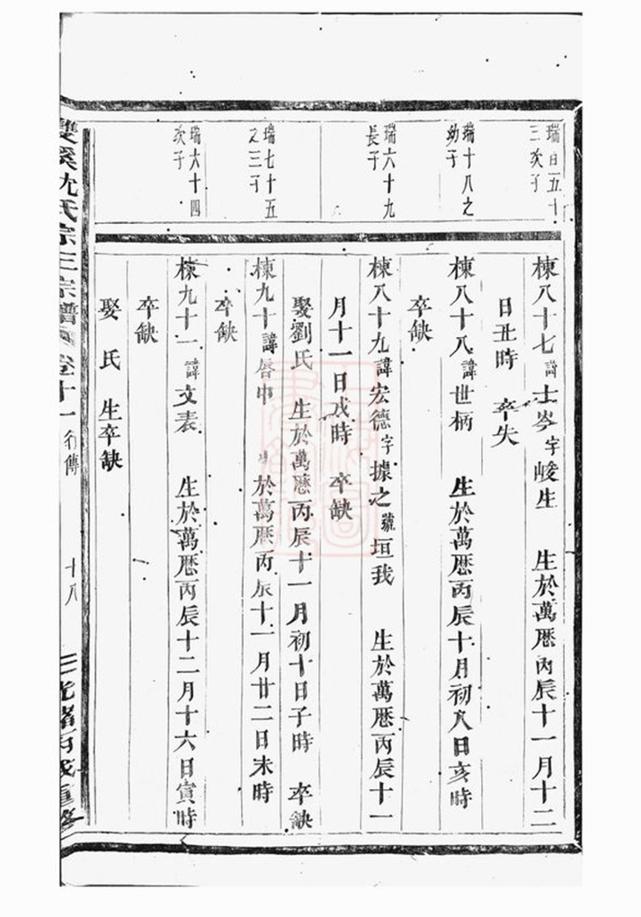 瑞百五十
三次子
瑞十八之
幼子
瑞六十九
長子
瑞七十五
之三子
瑞六十四
次子
棟八十七諱士岑字峻生 生於萬厯丙辰十一月十二
日丑時 卒失
棟八十八諱世柄 生於萬厯丙辰十月初八日亥時
卒缺
棟八十九諱宏德字據之號垣我 生於萬厯丙辰十一
月十一日戌時 卒缺
娶劉氏 生於萬厯丙辰十一月初十日子時 卒缺
棟九十諱 中 於萬厯丙辰十一月廿二日未時
卒缺
棟九十一諱文表 生於萬厯丙辰十二月十六日寅時
卒缺
娶 氏 生卒缺
雙溪沈氏宗 宗譜 卷十一 行傳 十八 光緒丙戌重修